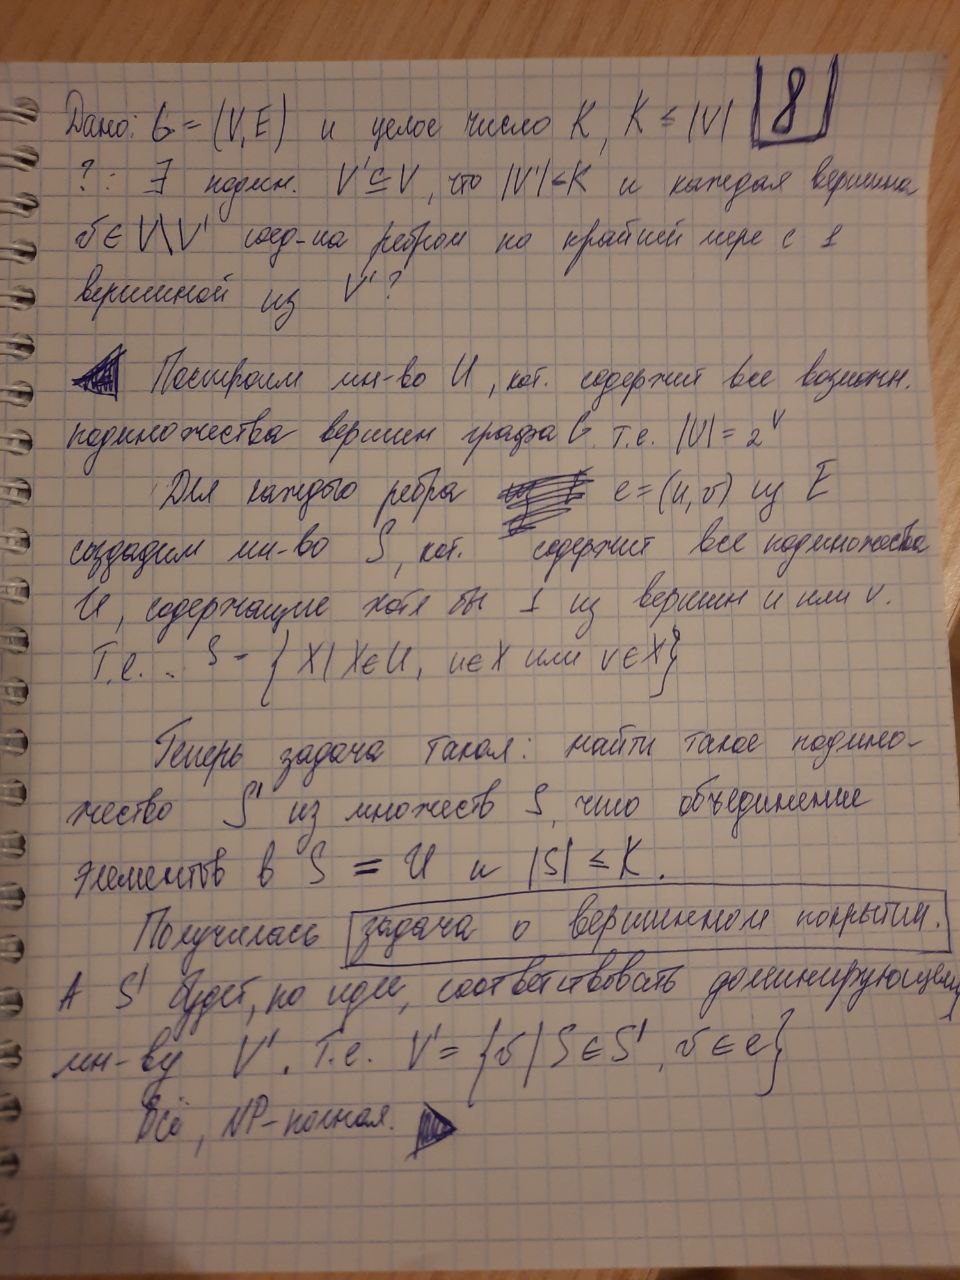 Дано: G = (V, E) и целое число K, K ≤ |V| 8
?: ∃ подмн. V' ⊆ V, что |V'| ≤ K и каждая вершина
v ∈ V\V' соед-на ребром по крайней мере с 1
вершиной из V'?
Построим мн-во U, кот. содержит все возможн.
подмножества вершин графа G. т.е. |U| = 2^V
Для каждого ребра e = (u, v) из E
создадим мн-во S, кот. содержит все подмножества
U, содержащие хотя бы 1 из вершин u или v.
Т.е. S = {X | X ∈ U, u ∈ X или v ∈ X}
Теперь задача такая: найти такое подмно-
жество S' из множеств S, что объединение
элементов в S = U и |S| ≤ K.
Получилась задача о вершинном покрытии.
А S' будет, по идее, соответствовать доминирующему
мн-ву V'. Т.е. V' = {v | S ∈ S', v ∈ e}
Всё, NP-полная.